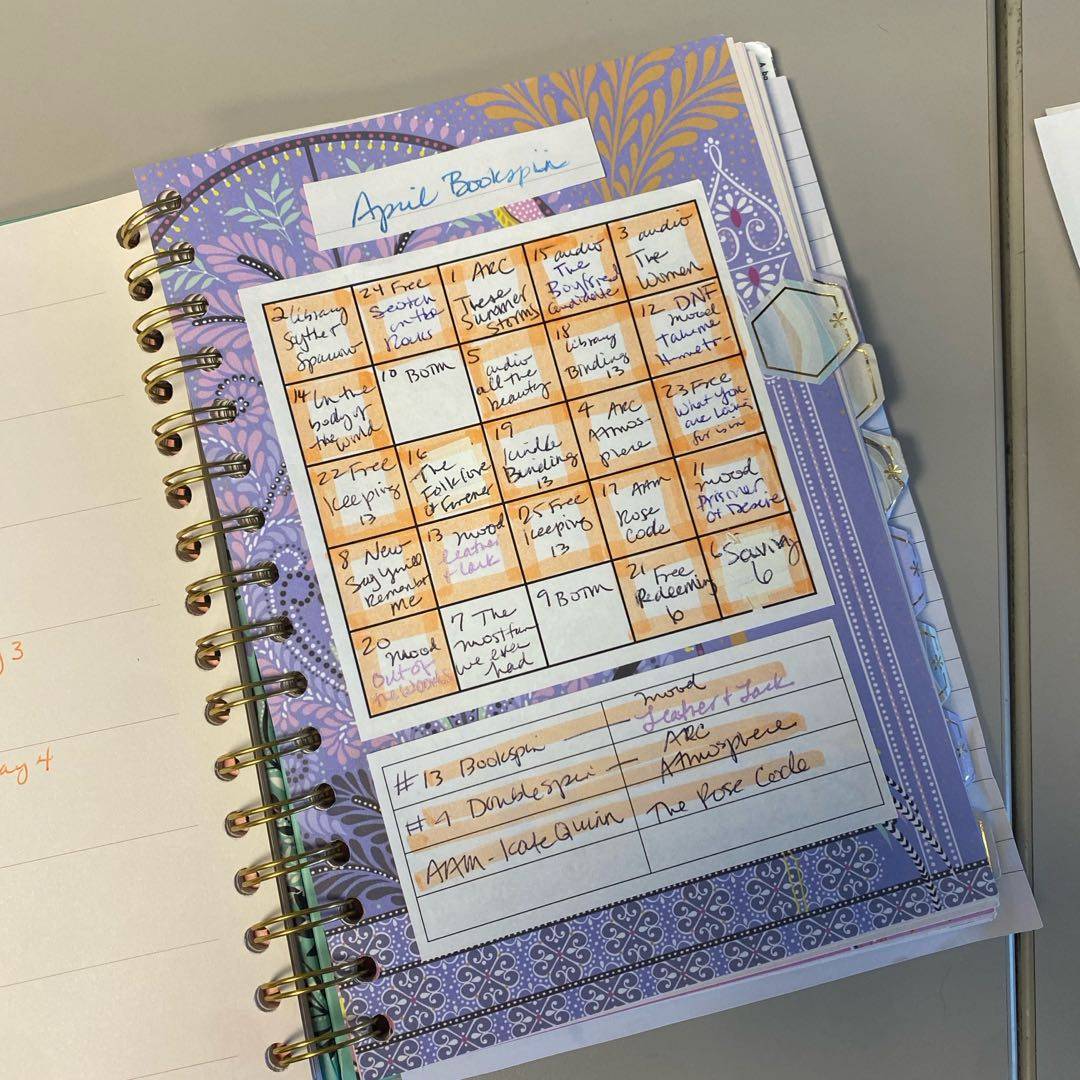 April Bookspin
2 library
Scythe &
Sparrow
24 Free
Scotch
on the
Rocks
1 ARC
These
Summer
Storms
15 audio
The
Boyfriend
Candidate
3 audio
The
Women
14 In the
body of
the world
10 BOTM
5
audio
all the
beauty
18
library
Binding
13
12 DNF
mood
Take me
Home tr-
22 Free
Keeping
13
16
The
Folklore
of Forever
19
Kindle
Binding
13
4 ARC
Atmos-
phere
23 Free
What you
are looking
for is in
8 New
Say you'll
Remember
Me
13 mood
Leather
& Lark
25 Free
Keeping
13
17 AAM
Rose
Code
11
mood
Prisoner
of Desire
20
mood
Out of
the woods
7 The
most fun
we ever
had
9 BOTM
21 Free
Redeeming
6
6 Saving
6
#13 Bookspin — mood
Leather & Lark
#4 Doublespin — ARC
Atmosphere
AAM - Kate Quinn The Rose Code
3
ay 4